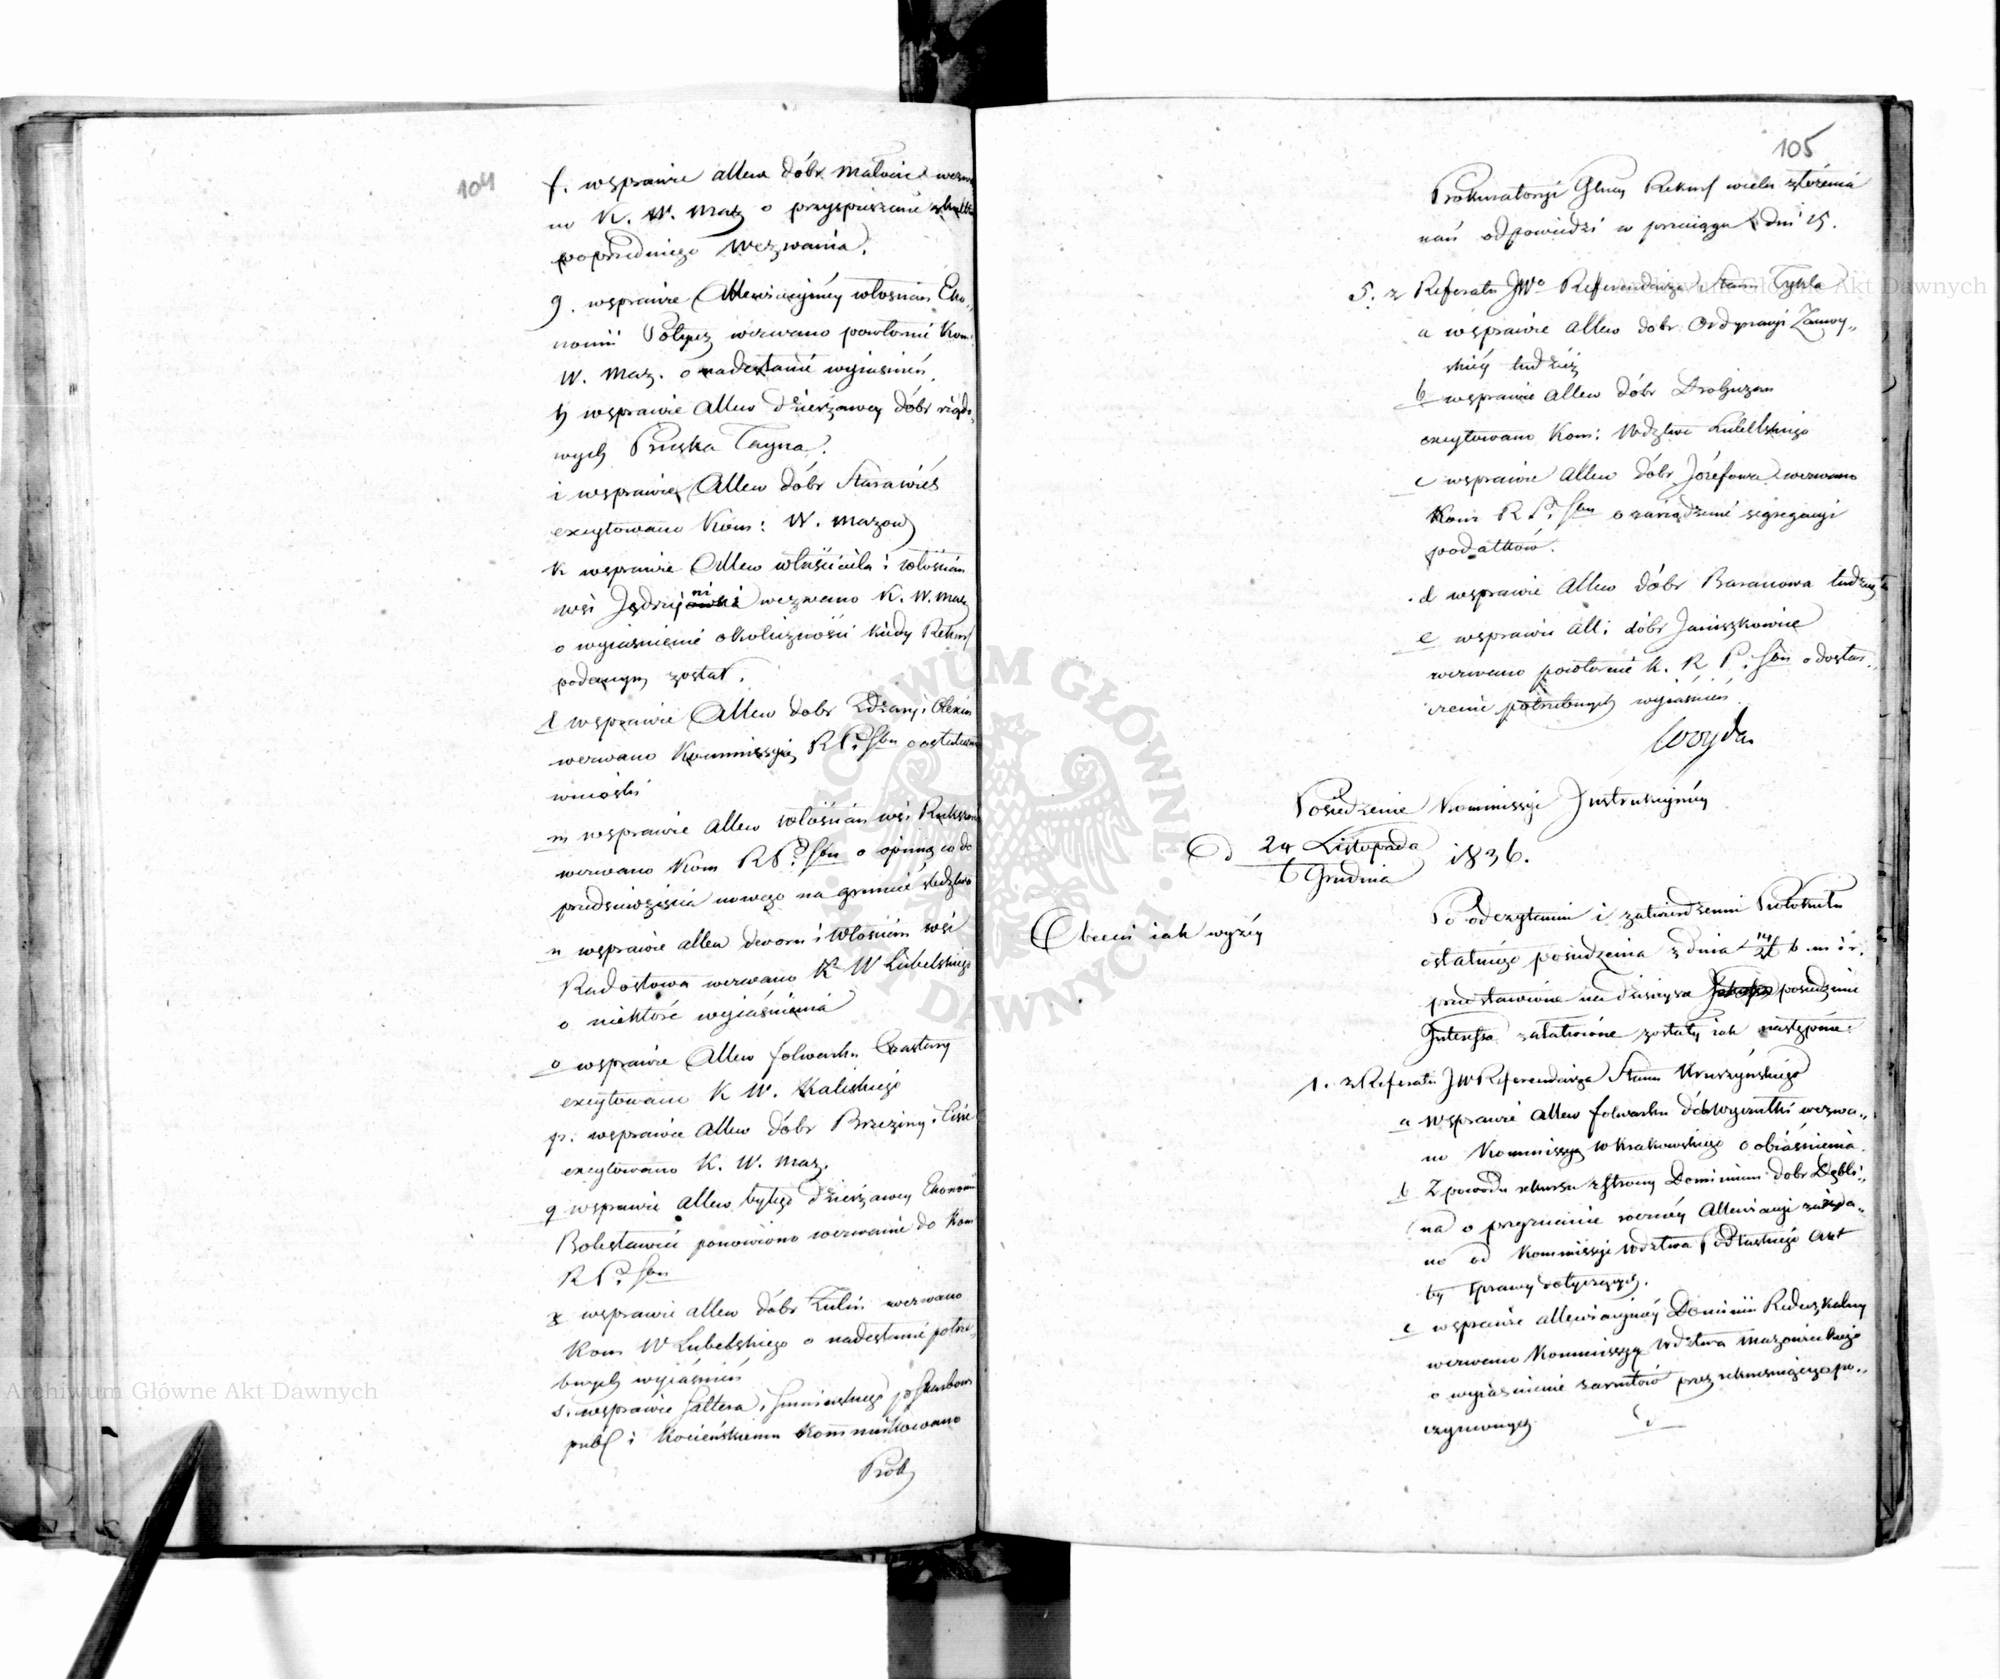 104
f. wsprawie allew dóbr Małocic wezwa
no K. W. Maz o przyspieszenie skutku
poprzedniego wezwania.
g. wsprawie Allewiacyjney włościan Eko,,
nomii Potycz wezwano powtornie Kom:
W. Maz. o nadesłanie wyiasnień.
h wsprawie Allew dzierżawcy dóbr rządo,,
wych Pruska Tayna.
i wsprawie Allew dóbr Starawieś
excytowano Kom: W. Mazow
k wsprawie Allew właściciela i włościan
wsi wezwano K. W. Maz
o wyiaśnienie okoliczności kiedy Rekurs
podanym został.
l wsprawie Allew dobr Zdżary i
wezwano Kommissyią R P. i Sbu o ostateczne
wnioski
m wsprawie allew włościan wsi
wezwano Kom R P. i Sbu o opinią co do
przedsiewzięcia nowego na gruncie śledztwa
n wsprawie allew dworu i włościan wsi
Radostowa wezwano K W Lubelskiego
o niektóre wyiaśnienia
o wsprawie Allew folwarku Czastary
excytowano K W. Kaliskiego
p. wsprawie Allew dóbr Brzeziny i
excytowano K. W. Maz.
q wsprawie allew byłego dzierżawcy Ekonomii
Bolesławiec ponowiono wezwanie do Kom
R P. i Sbu
r wsprawie allew dóbr Żulin wezwano
Kom W Lubelskiego o nadesłanie potrze,,
bnych wyiaśnień
s. wsprawie Saltera i Skarbow
publ i Kommunikowano
Prok
105
Prokuratoryi Głney Rekurs wcelu złożenia
nań odpowiedzi w przeciągu dni 15.
5. z Referatu JWo Referendarza Stanu Tykla
a wsprawie Allew dobr Ordynacyi Zamoy,,
skiéy tudzież
b wsprawie Allew dóbr
excytowano Kom: Wdztwa Lubelskiego
c wsprawie Allew dóbr Józefowa wezwano
Kom R P. i Sbu o zarządzenie segregacyi
podatków.
d wsprawie Allew dóbr Baranowa tudzież
e wsprawie All: dóbr Janiszkowice
wezwano powtornie K. R P. i Sbu o dostar,,
czenie potrzebnych wyiaśnień.
Woyda
Posiedzenie Kommissyi Instrukcyiney
D 24 Listopada 1836.
6 Grudnia
Obecni iak wyżéy
Po odczytaniu i zatwierdzeniu Protokułu
ostatniego posiedzenia z dnia b. m i r.
przedstawione na dzisieysze posiedzenie
Interessa załatwione zostały iak następnie:
1. z Referatu JW Referendarza Stanu Kruszyńskiego
a wsprawie Allew folwarku wezwa,,
no Kommissyą W Krakowskiego o obiaśnienia.
b Z powodu rekursu ze strony Dominium dobr Dębli,,
na o przyznanie Allewiacyi zażąda,,
no od Kommissyi Wdztwa Podlaskiego Akt
tey sprawy dotyczących.
c wsprawie allewiacyinéy Dominii
wezwano Kommissyą Wdztwa Mazowieckiego
o wyiaśnienie zarzutów przez rekurruiącego po,,
czynionych
d